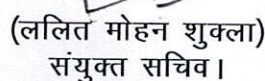 (ललित मोहन शुक्ला)
संयुक्त सचिव।